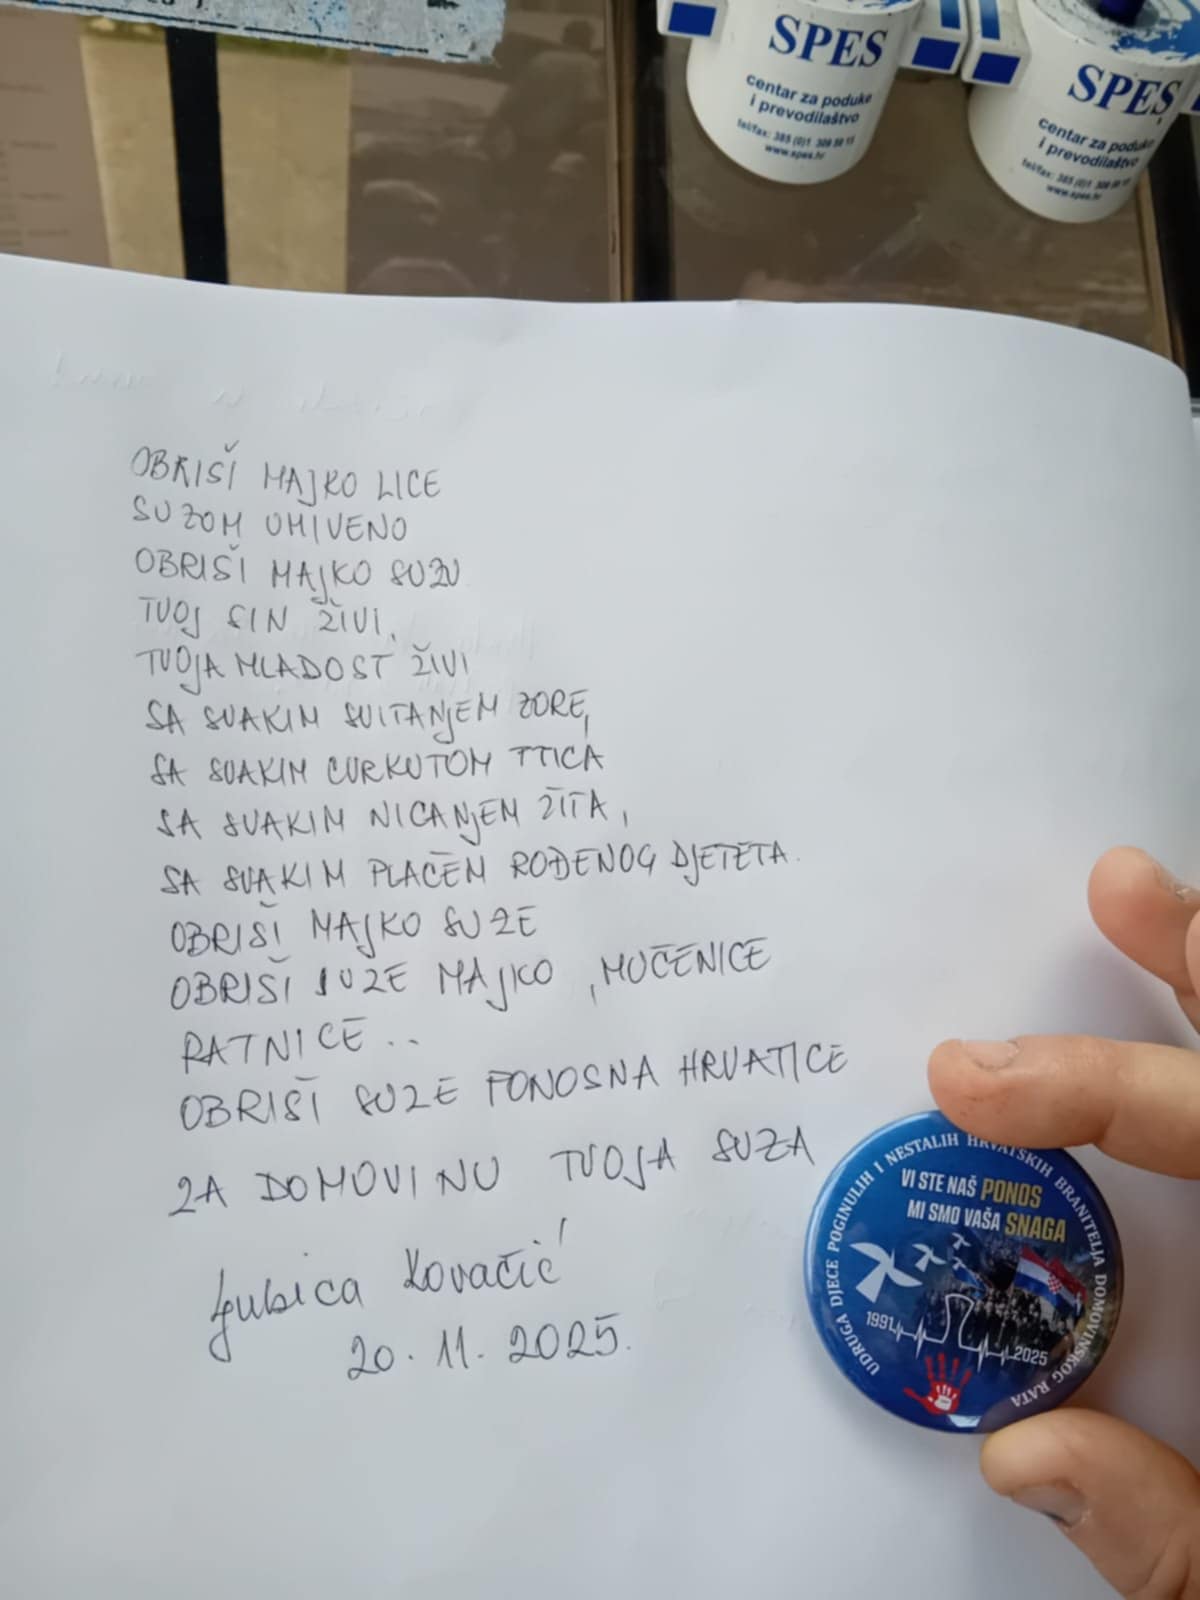 SPES
centar za poduke
i prevodilaštvo
www.spes.hr
SPES
centar za poduke
i prevodilaštvo
www.spes.hr
OBRIŠI MAJKO LICE
SUZOM UMIVENO
OBRIŠI MAJKO SUZU
TVOJ SIN ŽIVI,
TVOJA MLADOST ŽIVI
SA SVAKIM SVITANJEM ZORE,
SA SVAKIM CVRKUTOM PTICA
SA SVAKIM NICANJEM ŽITA,
SA SVAKIM PLAČEM ROĐENOG DJETETA.
OBRIŠI MAJKO SUZE
OBRIŠI SUZE MAJKO, MUČENICE
RATNICE..
OBRIŠI SUZE PONOSNA HRVATICE
ZA DOMOVINU TVOJA SUZA
Ljubica Kovačić
20.11.2025.
UDRUGA DJECE POGINULIH I NESTALIH HRVATSKIH BRANITELJA DOMOVINSKOG RATA
VI STE NAŠ PONOS
MI SMO VAŠA SNAGA
1991
2025